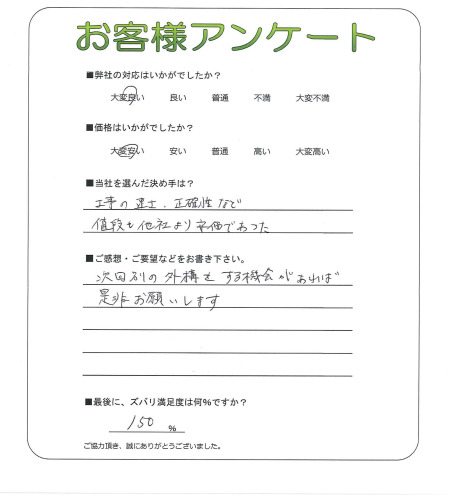 お客様アンケート
■弊社の対応はいかがでしたか？
大変良い 良い 普通 不満 大変不満
■価格はいかがでしたか？
大変安い 安い 普通 高い 大変高い
■当社を選んだ決め手は？
工事の速士、正確性など
値段も他社より安価であった
■ご感想・ご要望などをお書き下さい。
次回別の外構をする機会があれば
是非お願いします
■最後に、ズバリ満足度は何％ですか？
150 %
ご協力頂き、誠にありがとうございました。